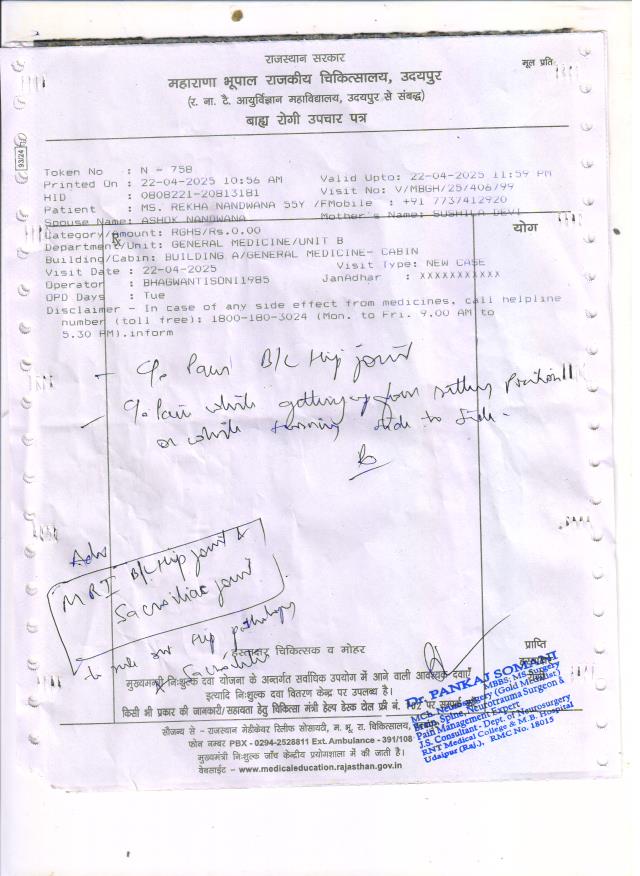 राजस्थान सरकार
मूल प्रति
महाराणा भूपाल राजकीय चिकित्सालय, उदयपुर
(र. ना. टै. आयुर्विज्ञान महाविद्यालय, उदयपुर से संबद्ध)
बाह्य रोगी उपचार पत्र
93/24
Token No : N - 758
Printed On : 22-04-2025 10:56 AM Valid Upto: 22-04-2025 11:59 PM
HID : 0808221-20813181 Visit No: V/MBGH/25/406799
Patient : MS. REKHA NANDWANA 55Y /F Mobile : +91 7737412920
Spouse Name: ASHOK NANDWANA Mother's Name: SUSHILA DEVI
Category/Amount: RGHS/Rs.0.00
योग
Department/Unit: GENERAL MEDICINE/UNIT B
Building/Cabin: BUILDING A/GENERAL MEDICINE- CABIN
Visit Date : 22-04-2025 Visit Type: NEW CASE
Operator : BHAGWANTISONI1985 JanAdhar : XXXXXXXXXXX
OPD Days : Tue
Disclaimer - In case of any side effect from medicines, call helpline
number (toll free): 1800-180-3024 (Mon. to Fri. 9.00 AM to
5.30 PM).inform
- C/o Pain B/L Hip joint
C/o Pain while getting up from sitting position
or while turning side to side.
Adv
MRI B/L Hip joint &
Sacroiliac joint
to rule out Hip pathology
हस्ताक्षर चिकित्सक व मोहर
प्राप्ति
मुख्यमंत्री निःशुल्क दवा योजना के अन्तर्गत सर्वाधिक उपयोग में आने वाली आवश्यक दवाएँ
इत्यादि निःशुल्क दवा वितरण केन्द्र पर उपलब्ध है।
किसी भी प्रकार की जानकारी/सहायता हेतु चिकित्सा मंत्री हेल्प डेस्क टोल फ्री नं. पर
सौजन्य से - राजस्थान मेडीकेयर रिलीफ सोसायटी, म. भू. रा. चिकित्सालय,
फोन नम्बर PBX - 0294-2528811 Ext. Ambulance - 391/108
मुख्यमंत्री निःशुल्क जाँच केन्द्रीय प्रयोगशाला में की जाती है।
वेबसाईट - www.medicaleducation.rajasthan.gov.in
Dr. PANKAJ SOMANI
MCh. Neurosurgery, MBBS; MS Surgery
Brain, Spine, Neurotrauma Surgeon &
Pain Management Expert
J.S. Consultant - Dept. of Neurosurgery
RNT Medical College & M.B. Hospital
Udaipur (Raj.), RMC No. 18015